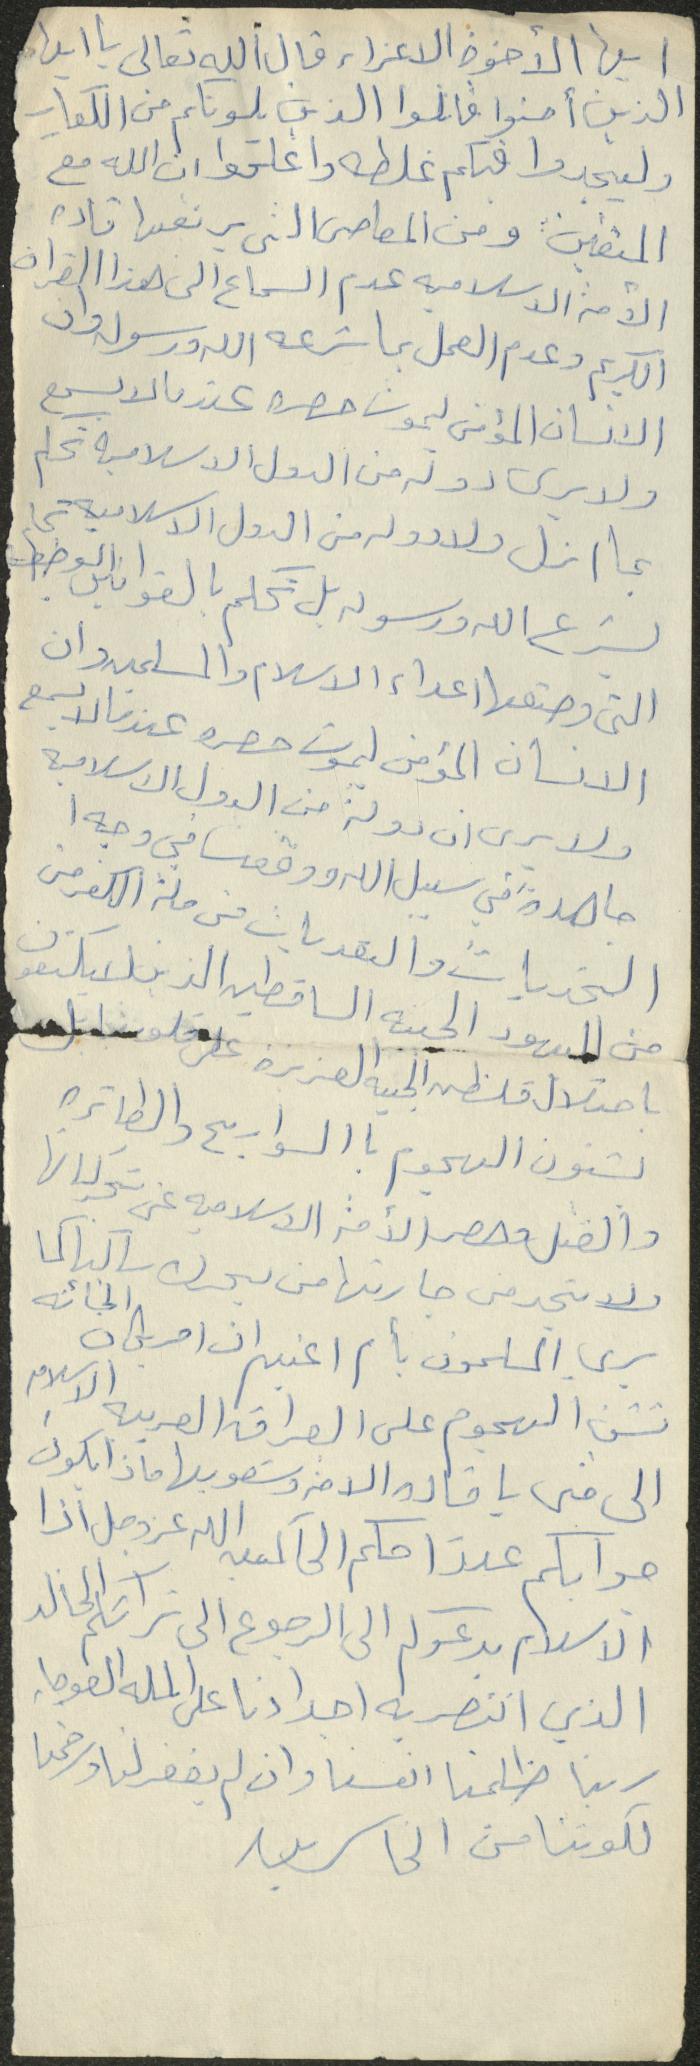 ايها الأخوة الاعزاء قال الله تعالى يا ايها
الذين أمنوا قاتلوا الذين يلونكم من الكفار
وليجدوا فيكم غلظه واعلموا ان الله مع
المتقين ومن المعاصي التي يرتكبها قاده
الأمة الاسلاميه عدم السماع الى هذا القران
الكريم وعدم العمل بما شرعه الله ورسوله وان
الانسان المؤمن ليموت حصره عندما لا يسمع
ولا يرى دوله من الدول الاسلامية تحكم
بما انزل ولا دوله من الدول الاسلاميه
بشرع الله ورسوله بل تحكم بالقوانين الوضعيه
التي وضعها اعداء الاسلام والمسلمين وان
الانسان المؤمن ليموت حصره عندما لا يسمع
ولا يرى ان دولة من الدول الاسلاميه
جاهدة في سبيل الله ووقفت في وجه ا
التحديات والتعديات من ملة الكفر من
من اليهود الساقطين الذين لا يكتفون
باحتلال فلسطين العزيزة على قلوبنا بل
يشنون الهجوم بالصواريخ والطائره
والقتل وحصر الأمة الاسلاميه عن
ولا تجد من جارتها من يحرك ساكنا كما
يرى المسلمون بأم اعينهم ان امريكا الخائنه
تشن الهجوم على العراق العربيه الاسلاميه
الى متى يا قاده الامه وشعوبها ماذا يكون
جوابكم عند احكم الحاكمين الله عز وجل اذا
الاسلام يدعوكم الى الرجوع الى تراثكم الخالد
الذي انتصر به اجدادنا على المله العوجاء
ربنا ظلمنا انفسنا وان لم يغفر لنا وترحمنا
لكوننا من الخاسرين